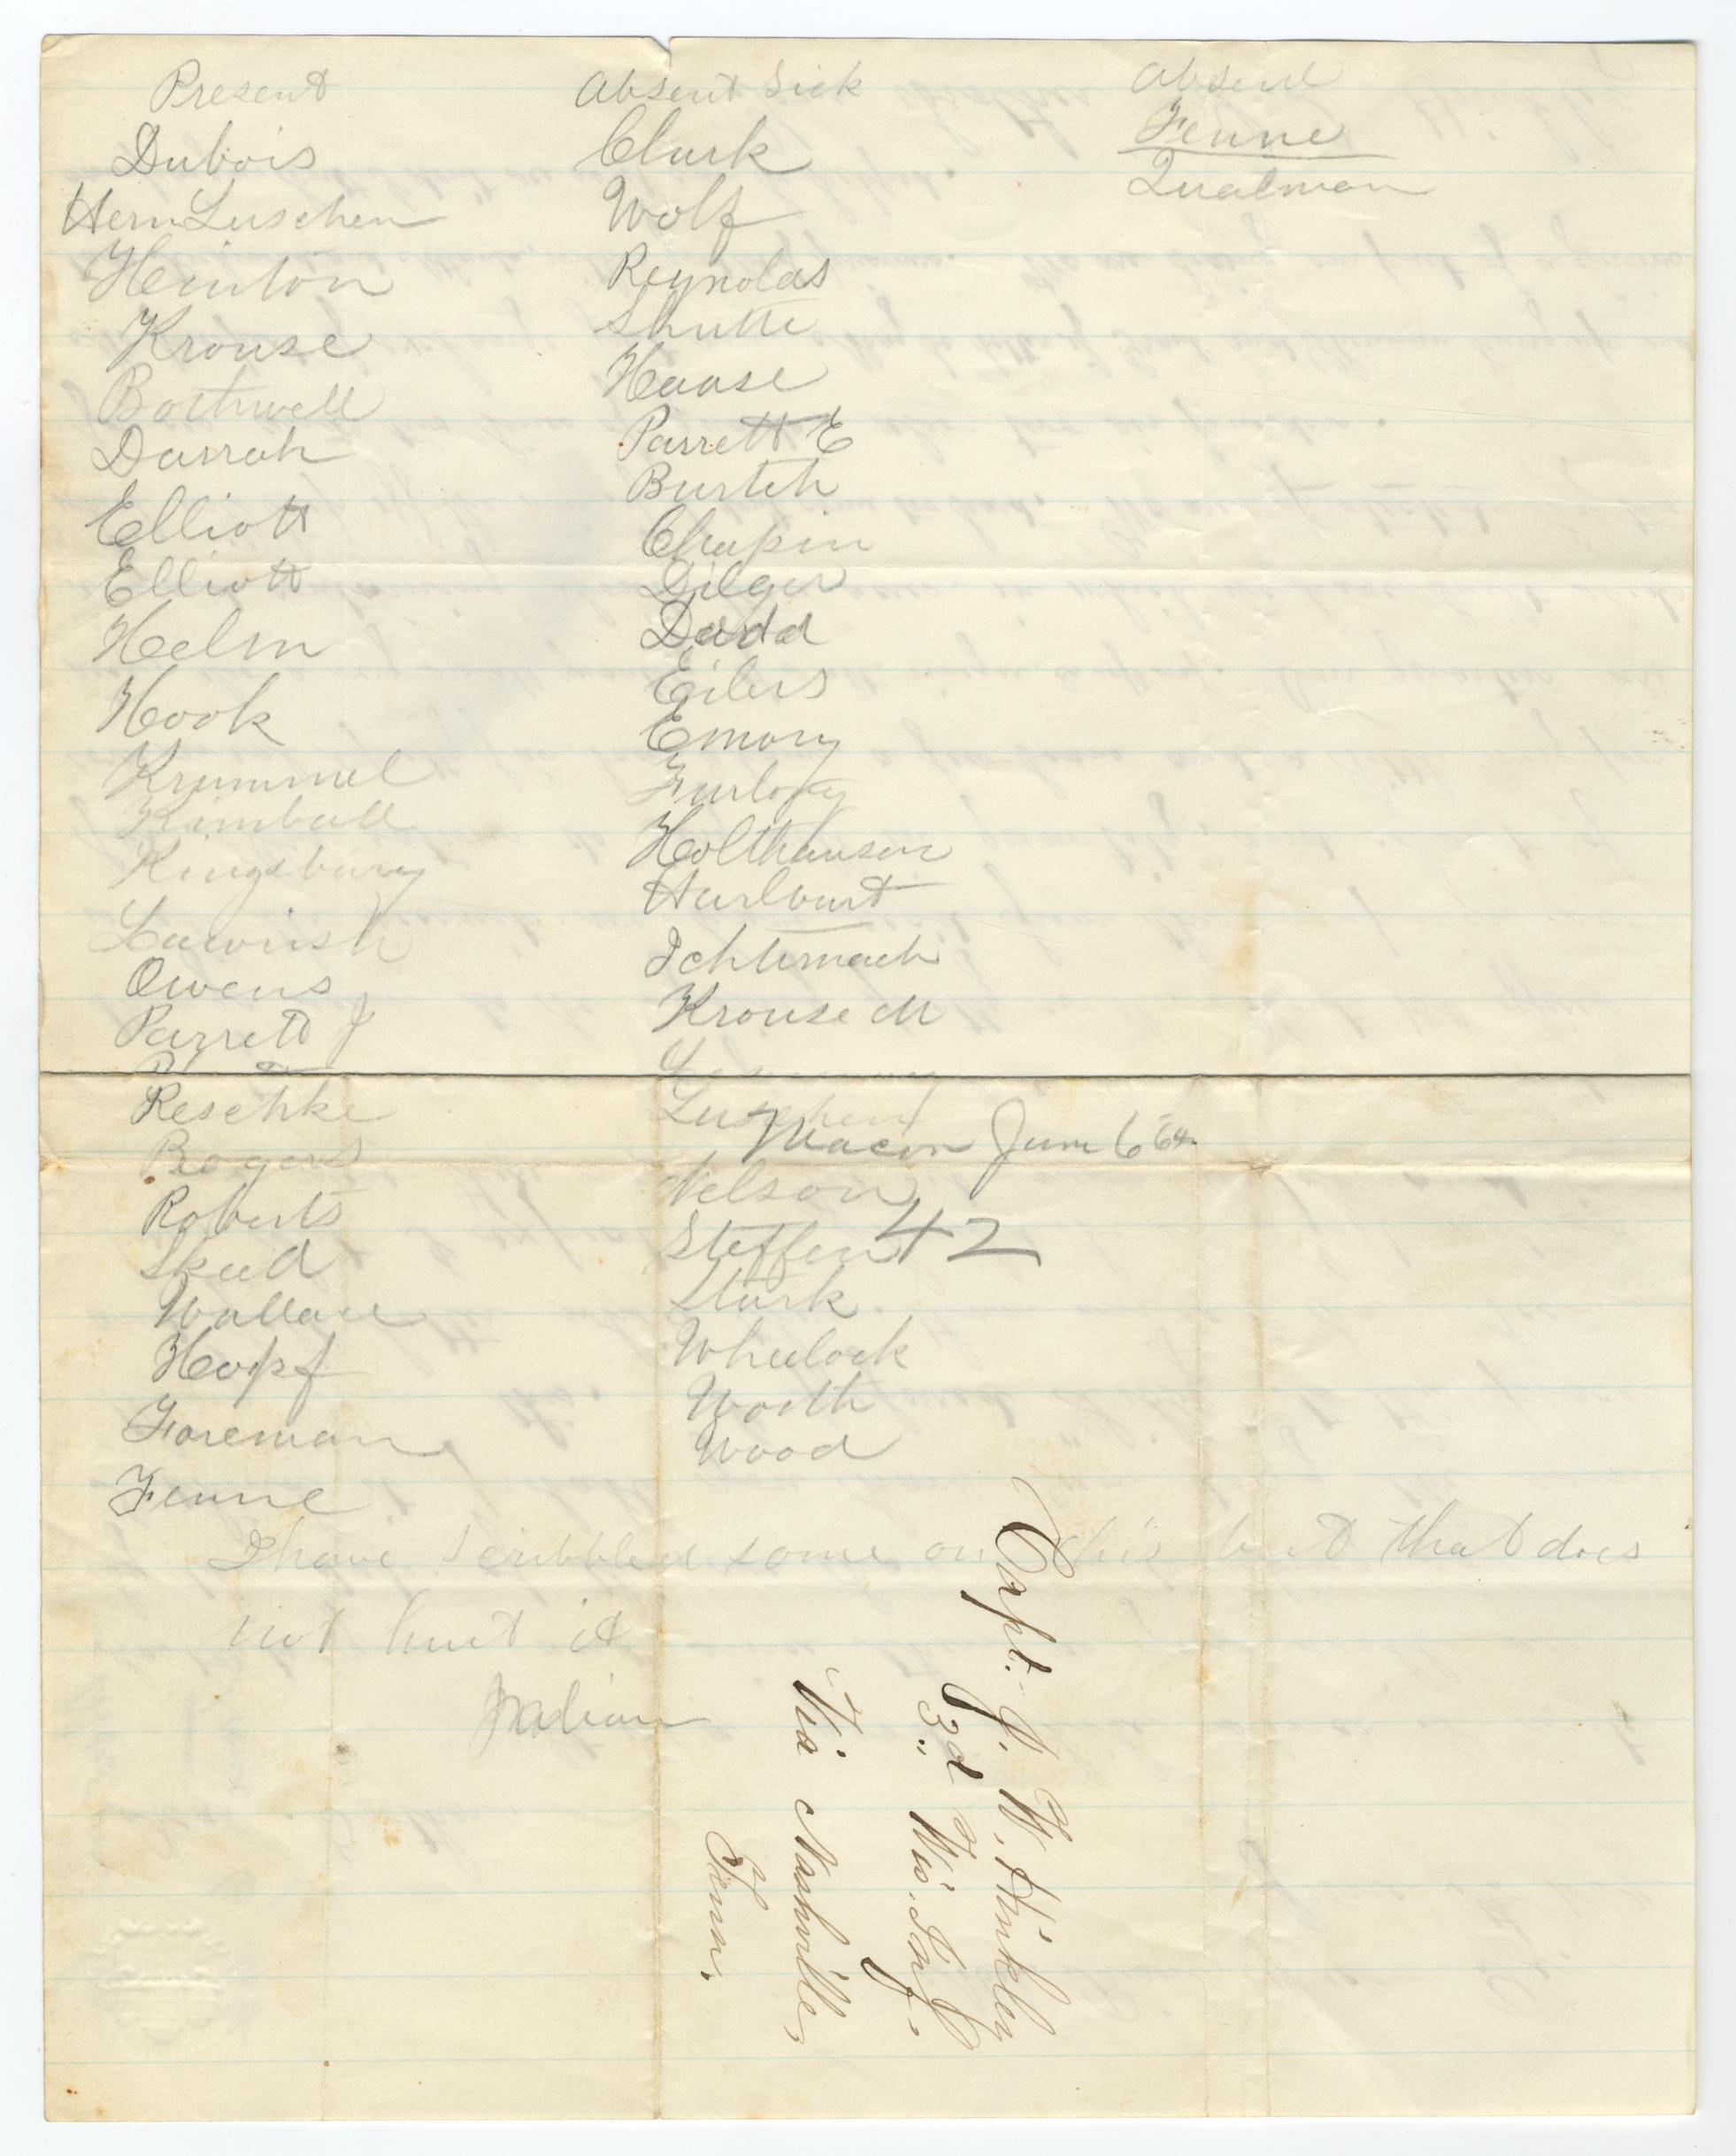 Present
Dubois
Hern Luschen
Heinton
Krouse
Bothwell
Darrah
Elliott
Elliott
Helm
Hook
Krummel
Kimball
Kingsbury
Owens
Parrett J
Reschke
Rogers
Roberts
Skeel
Wallace
Hopf
Foreman
Fenne
Absent Sick
Clark
Wolf
Reynolds
Shutte
Haase
Parrett E
Burtch
Chapin
Dilger
Dodd
Eilers
Emory
Furlong
Holthausen
Hurlburt
Ichternach
Krouse M
Luschen
Macon June 6 64
Nelson
Steffen 42
Stark
Wheelock
Worth
Wood
Absent
Fenne
Qualman
I have scribbled some on this but that does
not hurt it
Capt. J. W. Hinkley
3d Wis. Inf.
Via Nashville,
Tenn.